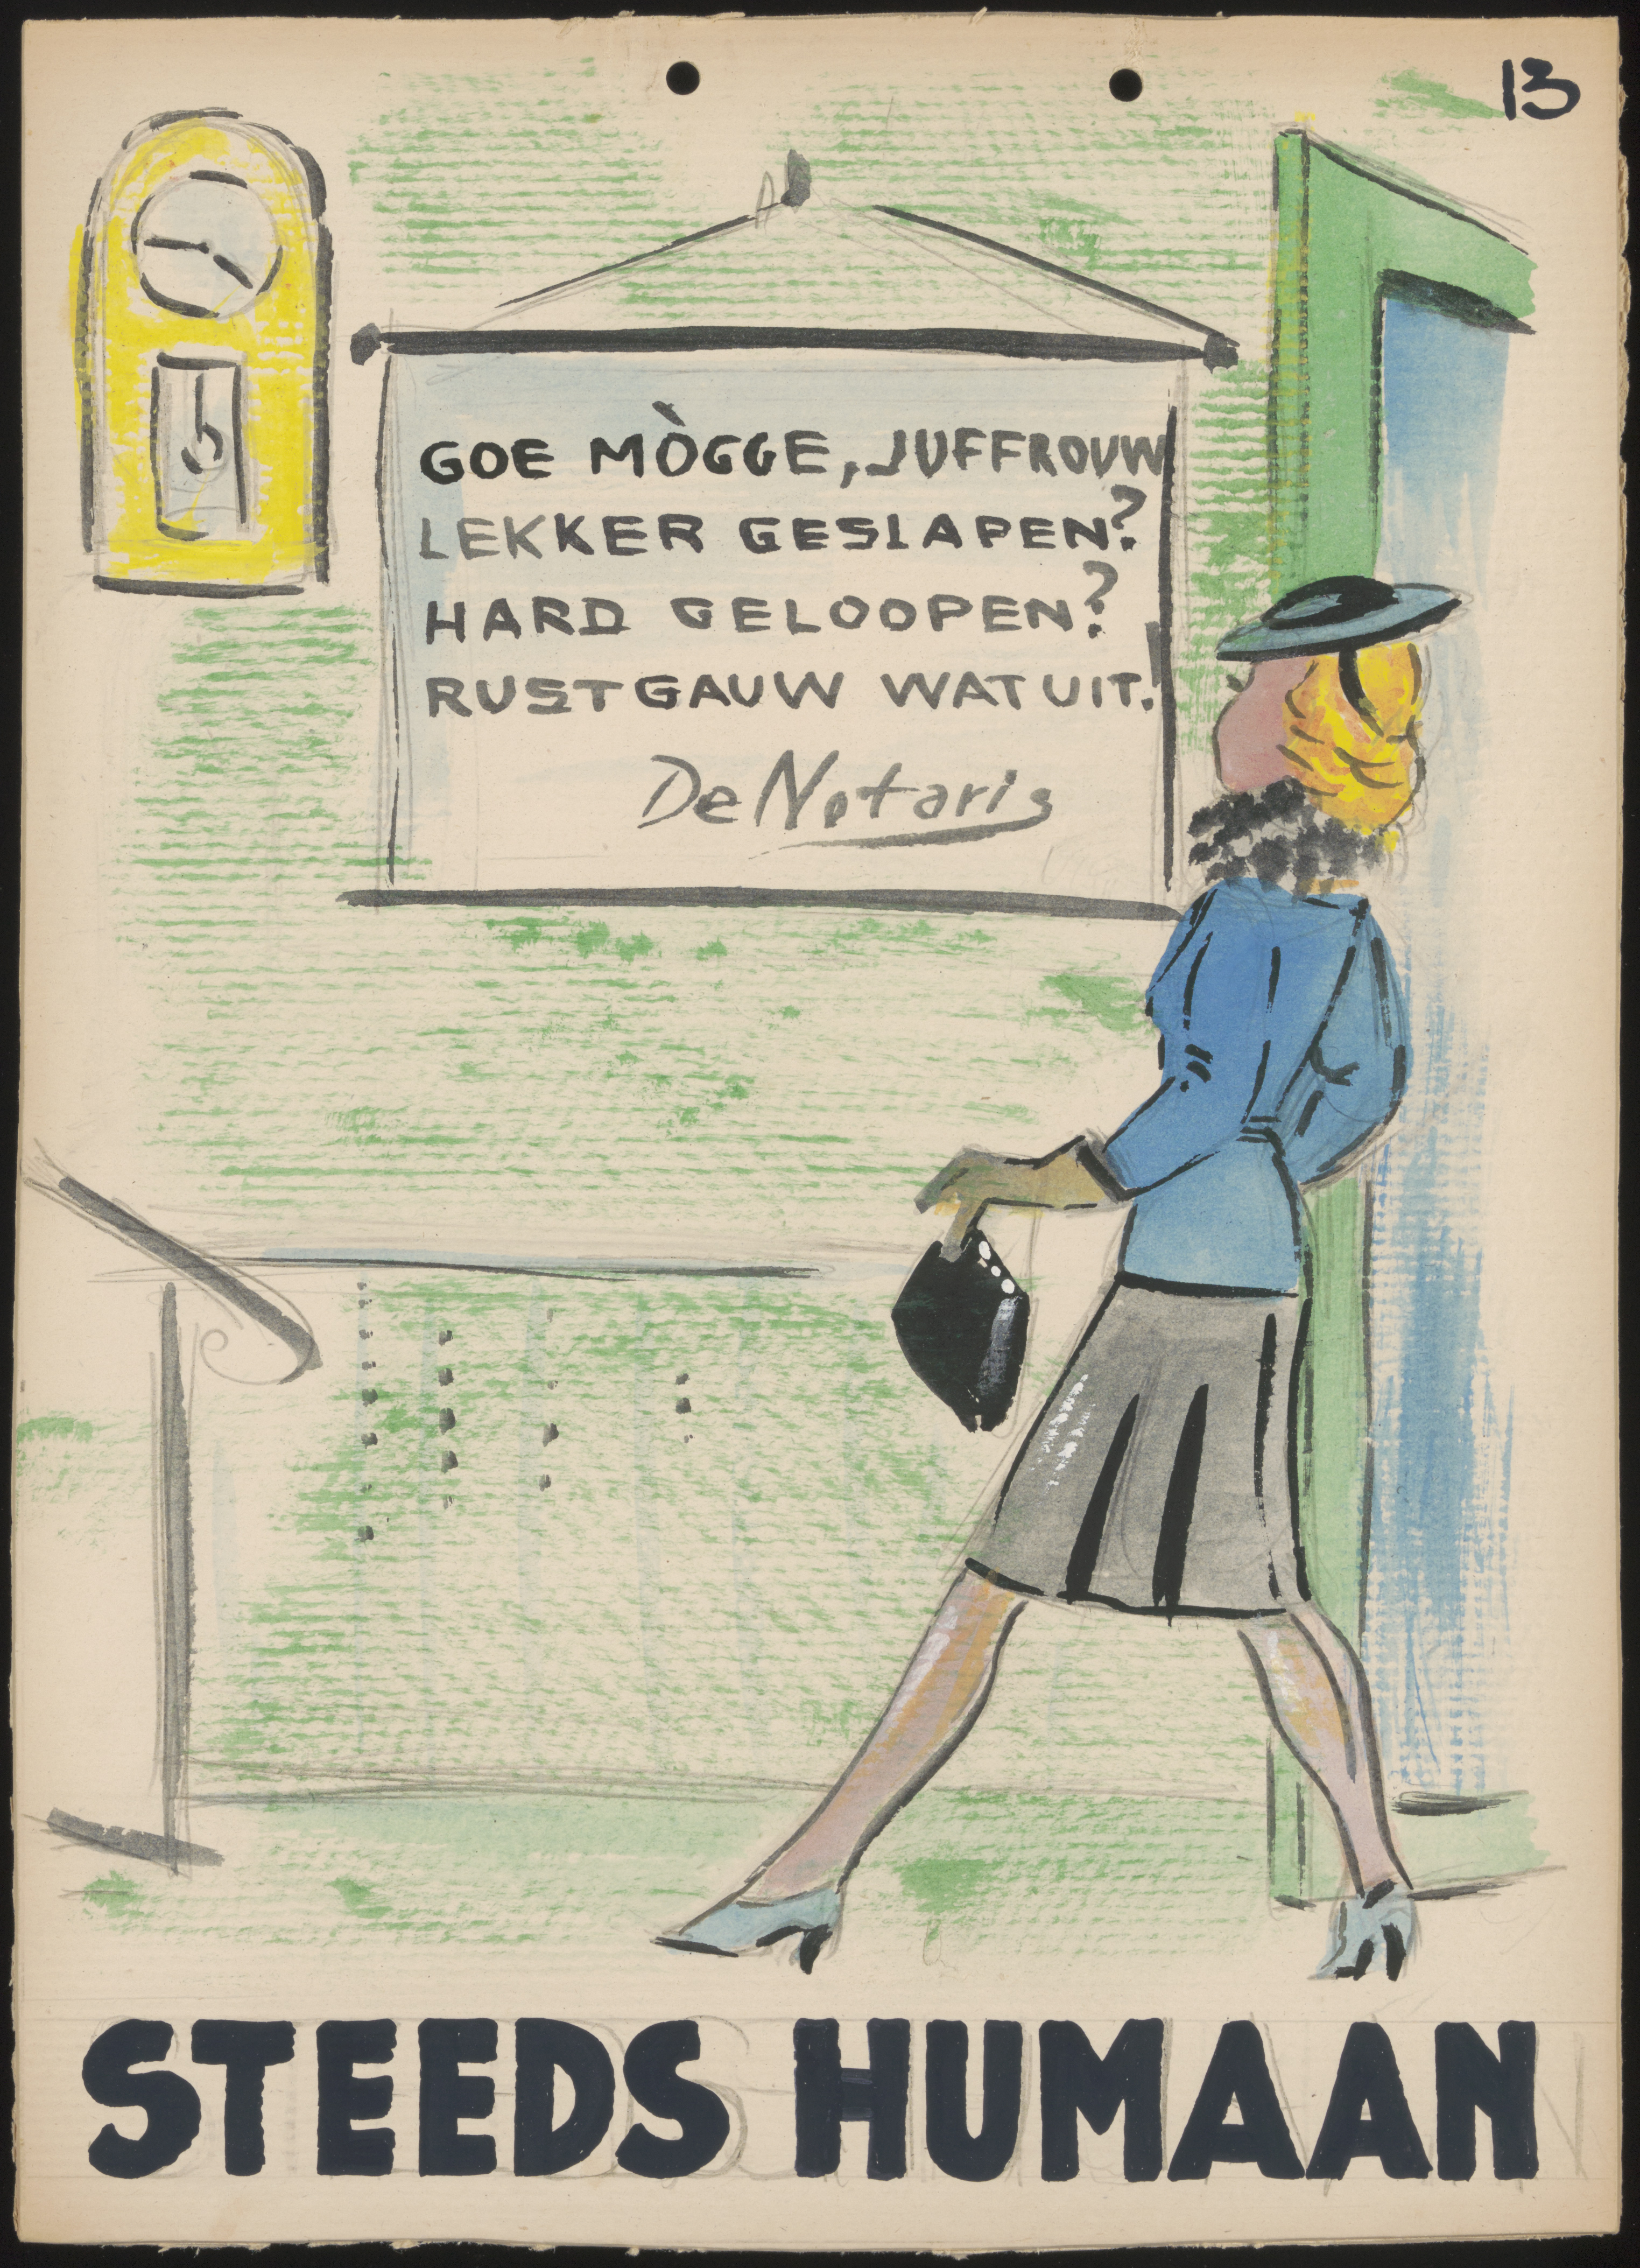 13
GOE MÒGGE, JUFFROUW
LEKKER GESLAPEN?
HARD GELOOPEN?
RUST GAUW WAT UIT.!
De Notaris
STEEDS HUMAAN